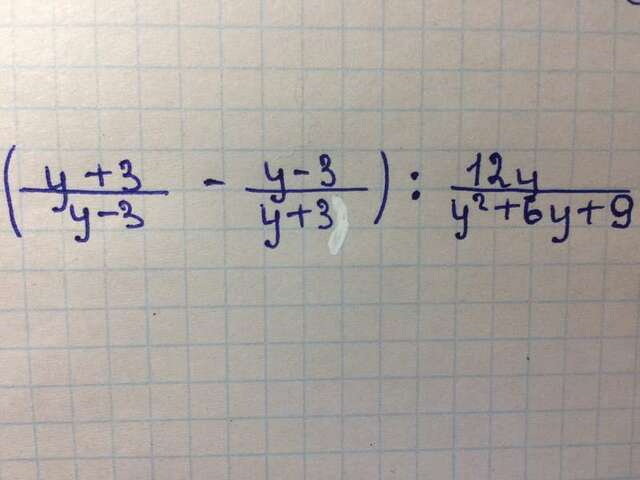 (y+3/y-3 - y-3/y+3) : 12y/y²+6y+9